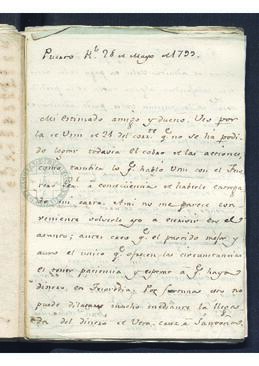 Puerto R.l 28 de Mayo de 1799.
Mi estimado amigo y dueno. Veo por
la de Vm de 21 del corr.te q.e no se ha podi-
do lograr todavia el cobro de las acciones,
como tambien lo q.e hablo Vm con el
a consecuencia de haberle
mi carta. A mi no me parece con-
veniente volverle yo a escrivir en el
asunto; antes creo q.e el partido mejor y
aun el unico q.e ofrecen las circunstancias
es tener paciencia y esperar a q.e haya
dinero en Por fortuna esto no
puede dilatarse mucho mediante la llega-
da del dinero de Vera-cruz a